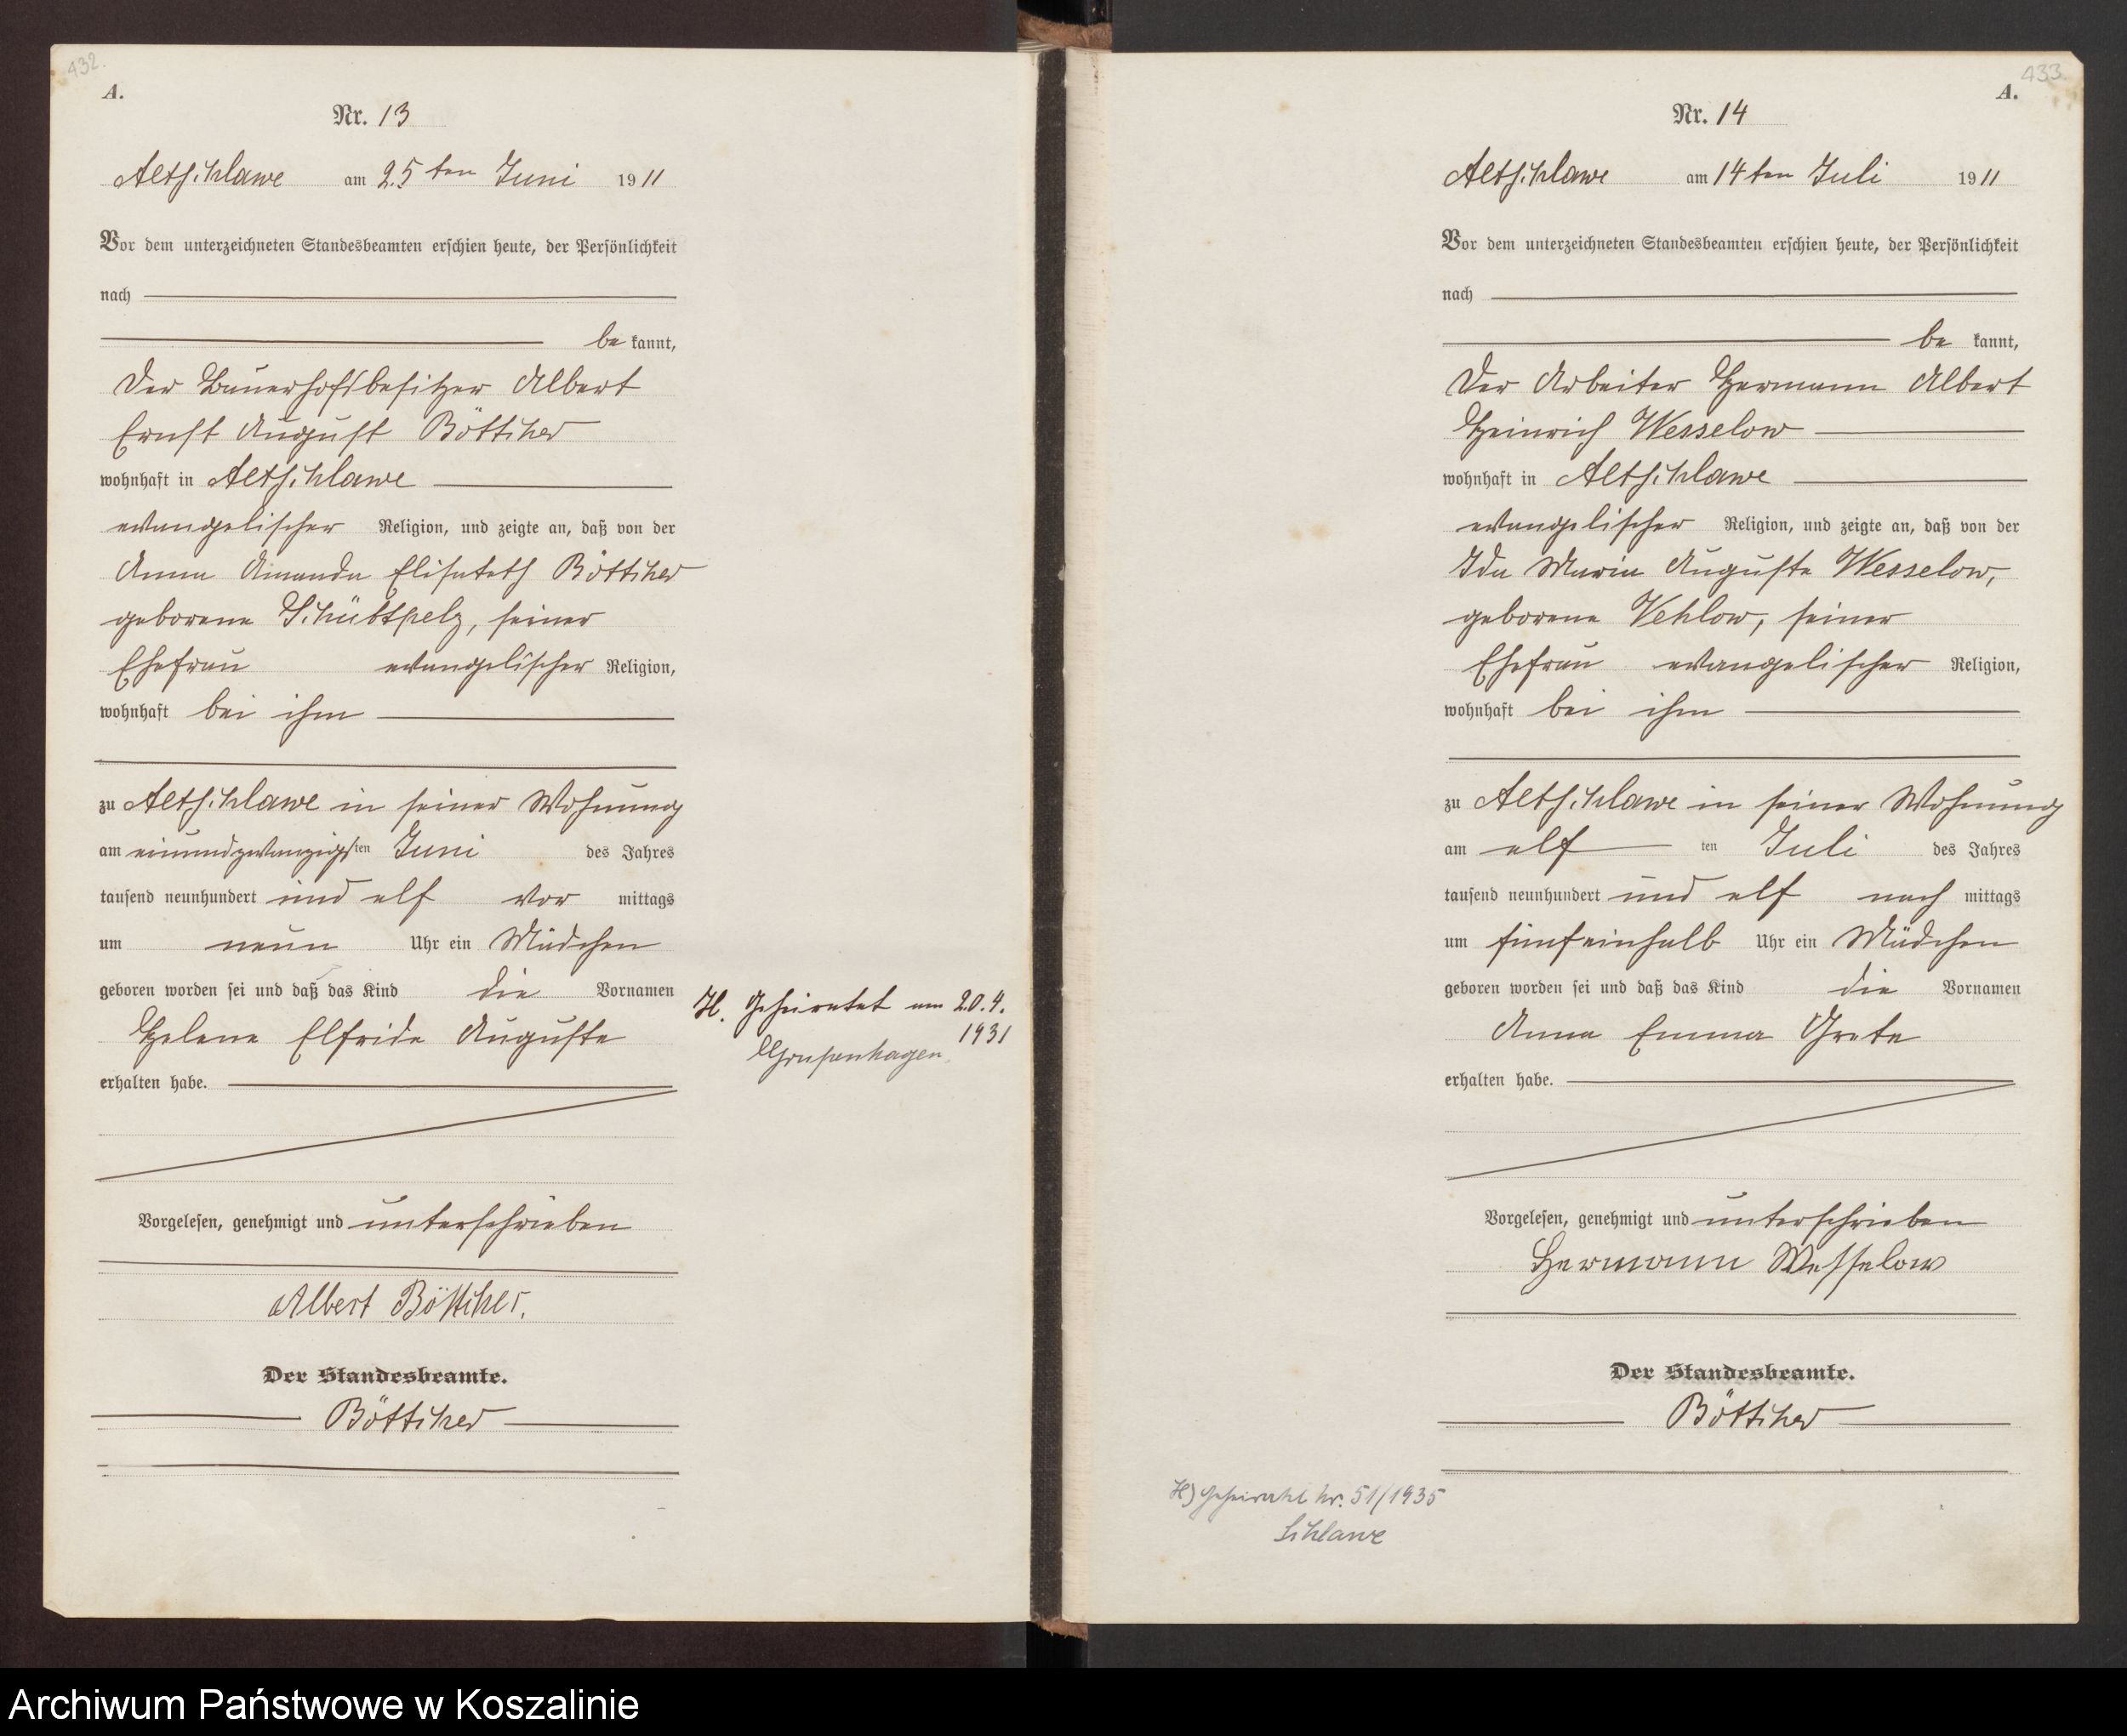 432.
A.
Nr. 13
Altschlawe am 25ten Juni 1911
Vor dem unterzeichneten Standesbeamten erschien heute, der Persönlichkeit
nach
be kannt,
Der Bauerhofsbesitzer Albert
Ernst August Böttcher
wohnhaft in Altschlawe
evangelischer Religion, und zeigte an, daß von der
Anna Amanda Elisabeth Böttcher
geborene Schübbpelz, seiner
Ehefrau evangelischer Religion,
wohnhaft bei ihm
zu Altschlawe in seiner Wohnung
am einundzwanzigsten Juni des Jahres
tausend neunhundert und elf vor mittags
um neun Uhr ein Mädchen
geboren worden sei und daß das Kind die Vornamen
Helene Elfride Auguste
erhalten habe.
Vorgelesen, genehmigt und unterschrieben
Albert Böttcher.
Der Standesbeamte.
Böttcher
H. Geheiratet am 20.4.
1931
Grupenhagen.
433.
A.
Nr. 14
Altschlawe am 14ten Juli 1911
Vor dem unterzeichneten Standesbeamten erschien heute, der Persönlichkeit
nach
be kannt,
Der Arbeiter Hermann Albert
Heinrich Wesselow
wohnhaft in Altschlawe
evangelischer Religion, und zeigte an, daß von der
Ida Maria Auguste Wesselow,
geborene Vehlow, seiner
Ehefrau evangelischer Religion,
wohnhaft bei ihm
zu Altschlawe in seiner Wohnung
am elf ten Juli des Jahres
tausend neunhundert und elf nach mittags
um fünfeinhalb Uhr ein Mädchen
geboren worden sei und daß das Kind die Vornamen
Anna Emma Grete
erhalten habe.
Vorgelesen, genehmigt und unterschrieben
Hermann Wesselow
Der Standesbeamte.
Böttcher
H) Geheiratet Nr. 51/1935
Schlawe
Archiwum Państwowe w Koszalinie